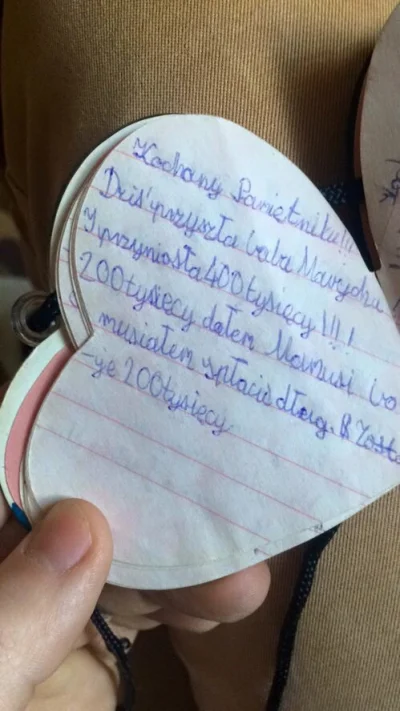 Kochany Pamiętniku!!!
Dziś przyszła baba Marycha
I przyniosła 400 tysięcy!!!!
200 tysięcy dałem Mamusi bo
musiałem spłacić dług. &
-ye 200 tysięcy